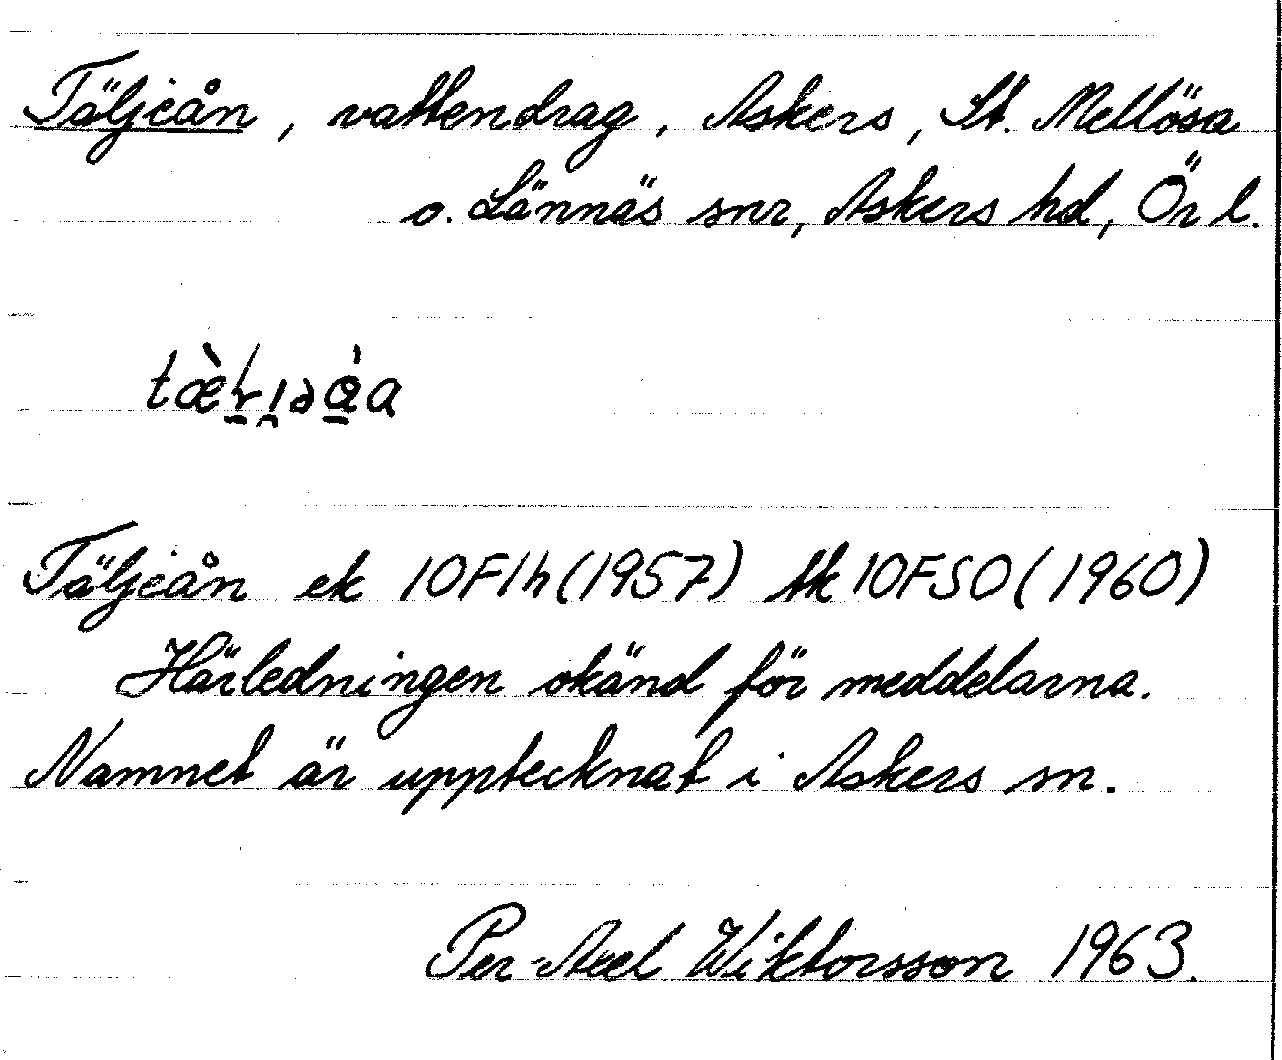 Täljeån, vattendrag, Askers, St. Mellösa
o. Lännäs snr, Askers hd, Ör l.
Täljeån ek 10F1h (1957) tk 10FSO (1960)
Härledningen okänd för meddelarna.
Namnet är upptecknat i Askers sn.
Per-Axel Wiktorsson 1963.